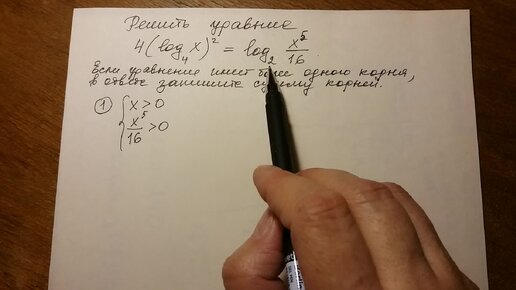 Решить уравние
4(log₄x)² = log₂ x⁵/16
Если уравнение имеет более одного корня,
в ответе запишите сумму корней.
① { x > 0
x⁵/16 > 0